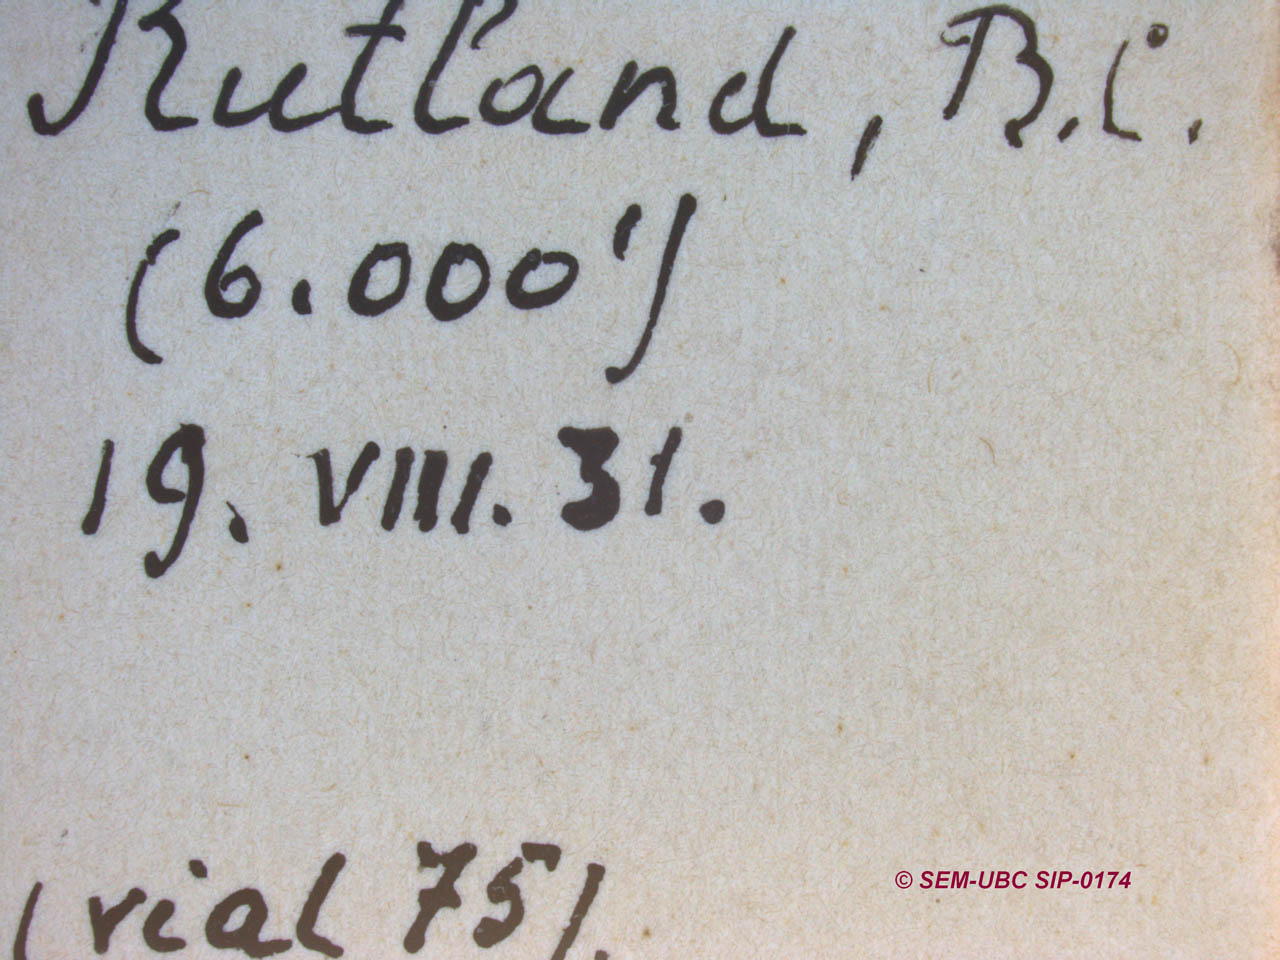 Rutland, B.C.
(6.000')
19. VIII. 31.
(vial 75).
© SEM-UBC SIP-0174